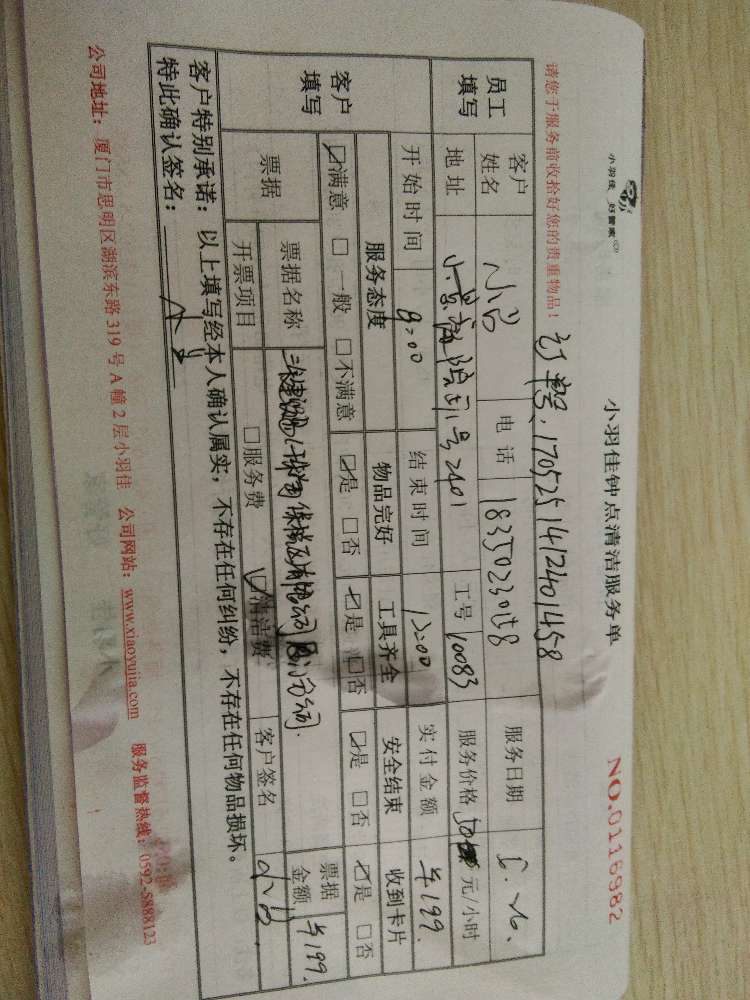 小羽佳 好管家
小羽佳钟点清洁服务单
NO.0116982
请您于服务前收拾好您的贵重物品!
订单号:1705251412401458
员工填写 客户姓名 小吕 电话 18350230158 服务日期
地址 2401 工号 10083 服务价格 元/小时
开始时间 9:00 结束时间 12:00 实付金额 ¥199.
客户填写 服务态度 物品完好 工具齐全 安全结束 收到卡片
☑满意 □一般 □不满意 ☑是 □否 ☑是 □否 ☑是 □否 ☑是 □否
票据 票据名称 票据金额 ¥199.
开票项目 □服务费 ☑清洁费 客户签名
客户特别承诺:以上填写经本人确认属实,不存在任何纠纷,不存在任何物品损坏。
特此确认签名:
公司地址:厦门市思明区湖滨东路319号A幢2层小羽佳 公司网站:www.xiaoyujia.com 服务监督热线:0592-5888123